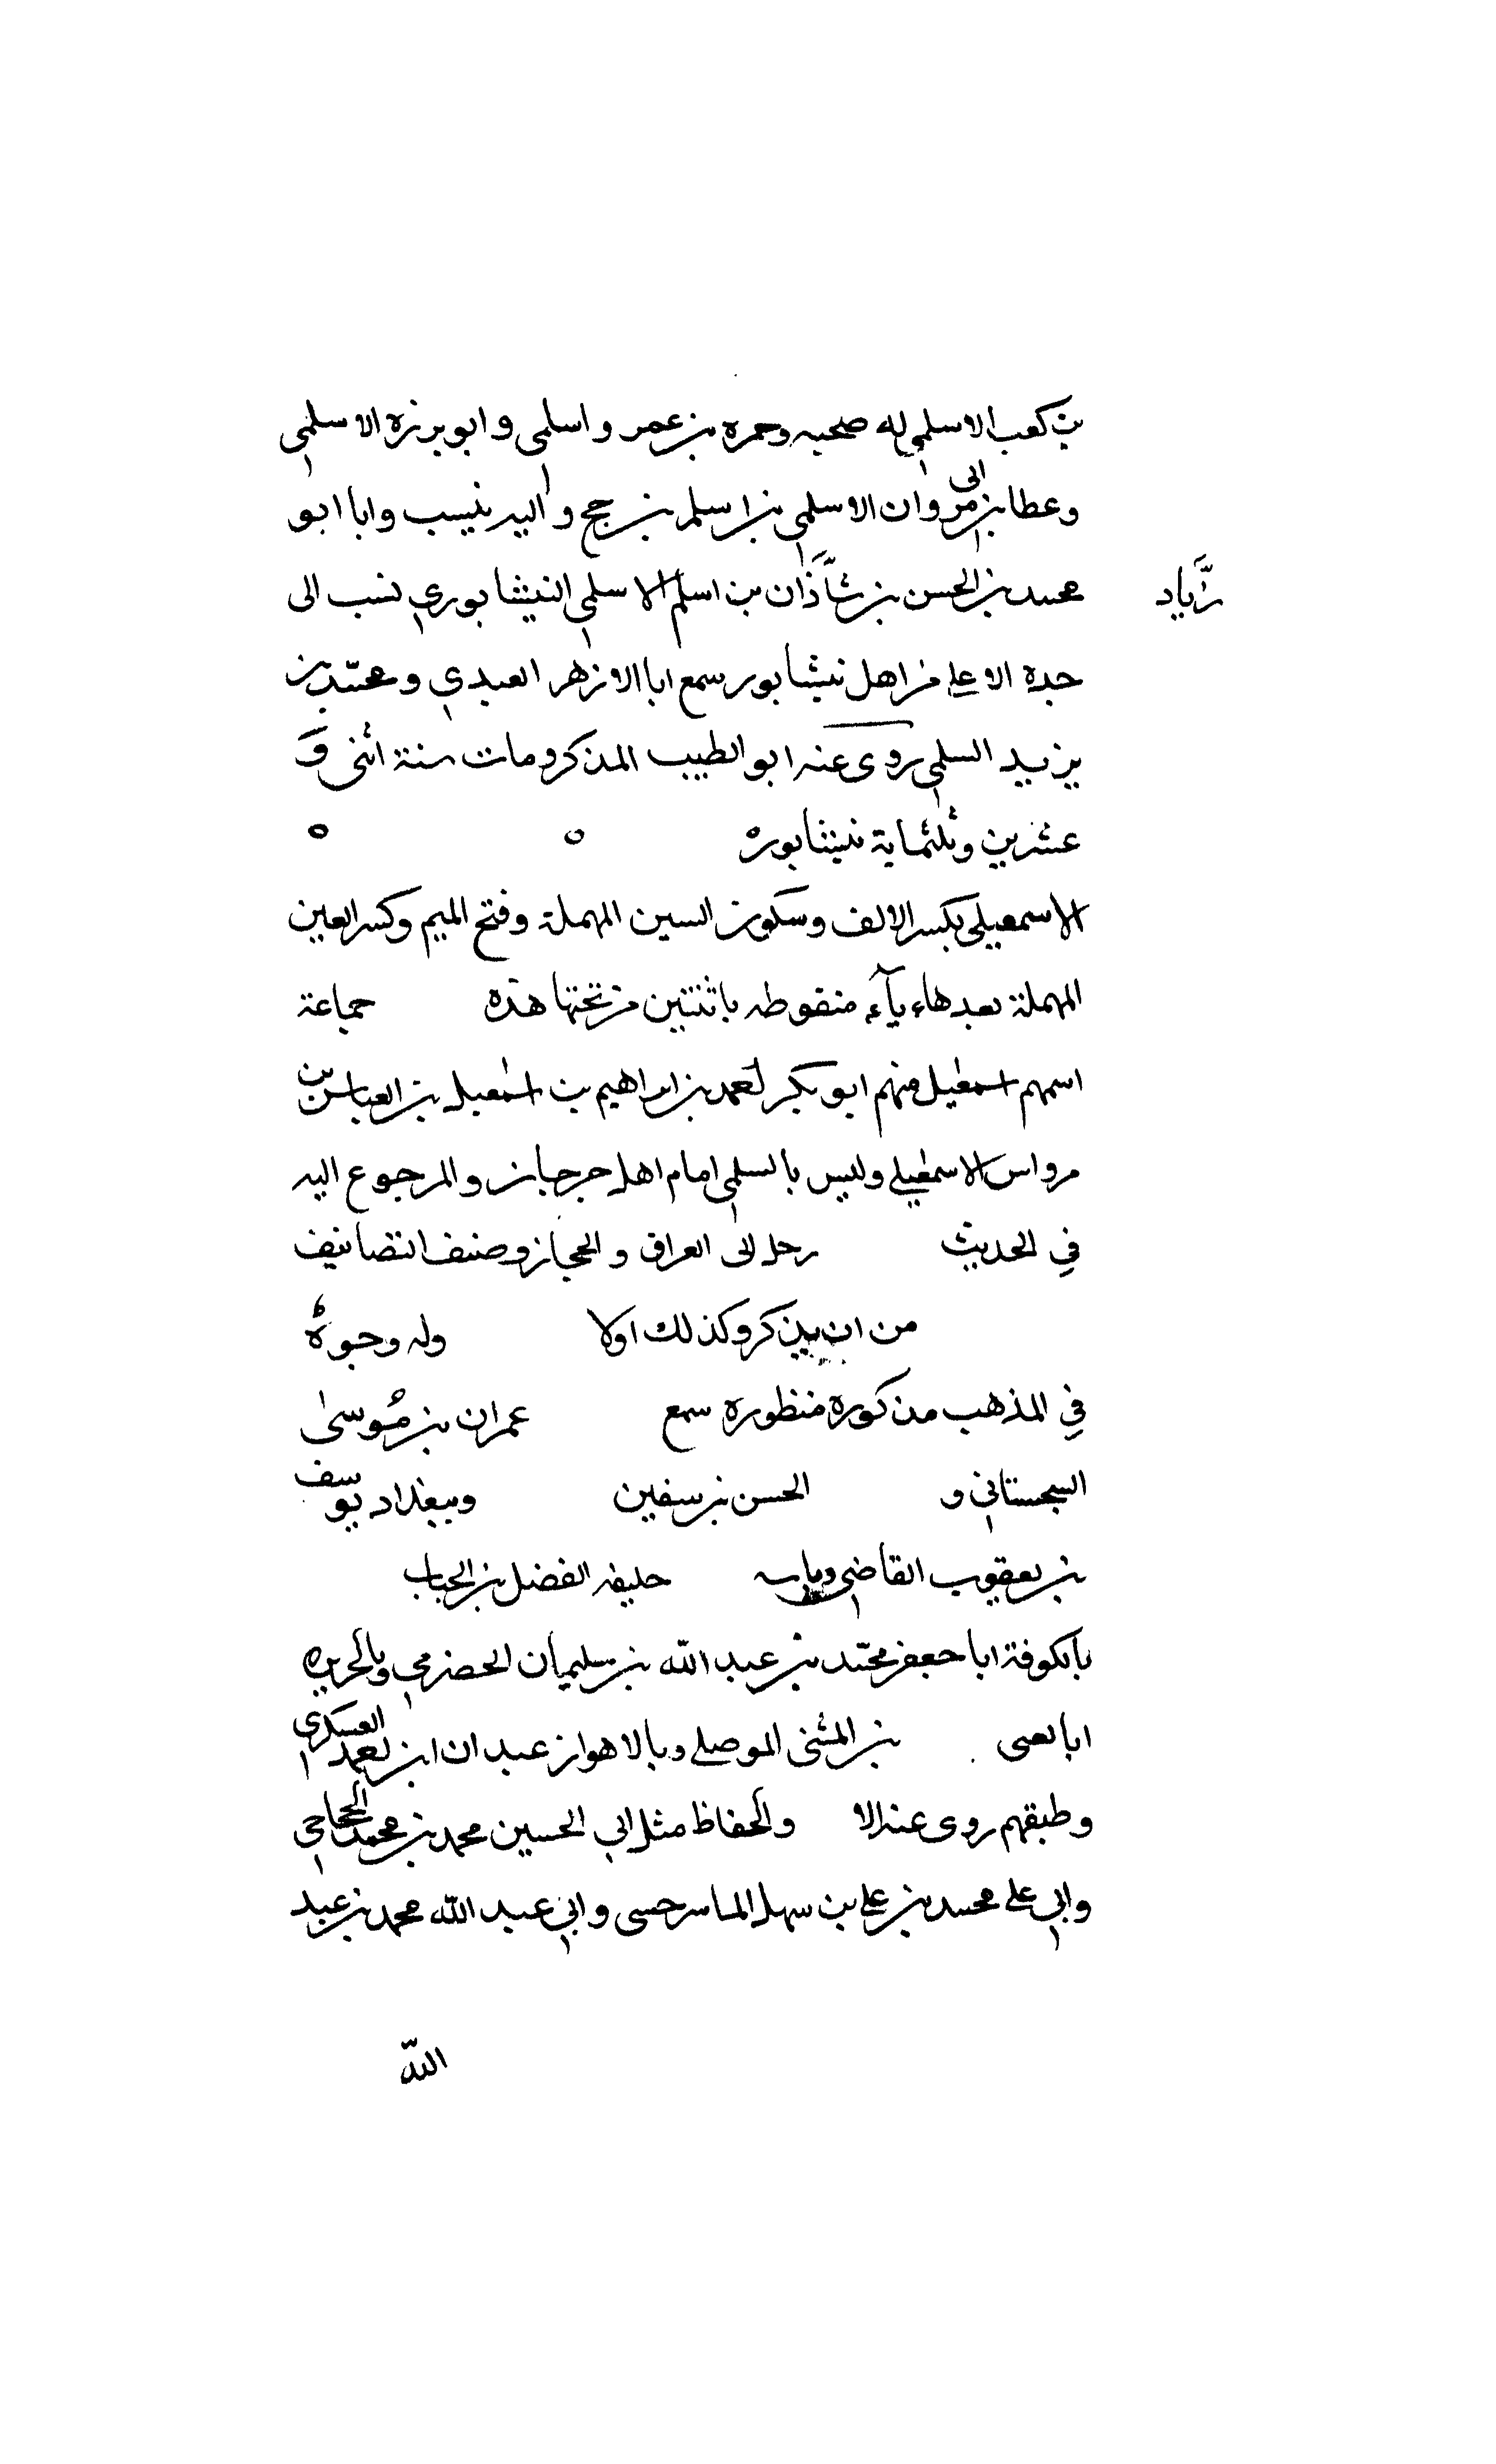 بن كعب الاسلمي له صحبه وحمره بن عمر و اسلمى و ابو برزه الاسلمي
وعطا بن ابى مروان الاسلمي بن اسلم بن جمح و اليه ينسب وابا ابو
محمد بن الحسن بن شاذان بن اسلم الاسلمي النيشابوري نسب الى
زياد
جده الاعلى من اهل نيشابور سمع ابا الازهر العبدي و محمد بن
يزيد السلمي روى عنه ابو الطيب المذكر ومات سنة اثنى و
عشرين وثلثماية نيشابور ه ه ه
الاسمعيلي بكسر الالف وسكون السين المهملة وفتح الميم وكسر العين
المهملة بعدها ياء منقوطه باثنتين من تحتها هذه جماعة
اسمهم اسمعيل منهم ابو بكر احمد بن ابراهيم بن اسمعيل بن العباس بن
مرداس الاسمعيلي وليس بالسلمي امام اهل جرجان والمرجوع اليه
في الحديث رحل الى العراق و الحجاز وصنف التصانيف
من ان يذكر وكذلك اولا وله وجوه
في المذهب مذكوره منظوره سمع عمران بن موسى
السجستاني و الحسن بن سفين وببغداد يوسف
بن يعقوب القاضي خليفه الفضل بن الحباب
بالكوفة ابا جعفر محمد بن عبد الله بن سليمان الحضرمي وبالجزيره
ابا يعلى بن المثنى الموصلي وبالاهواز عبدان ابن احمد العسكري
وطبقهم روى عنه الا والحفاظ مثل ابي الحسين محمد بن محمد الحجاجي
وابي علي محمد بن علي بن سهل الماسرجسي وابي عبد الله محمد بن عبد
الله